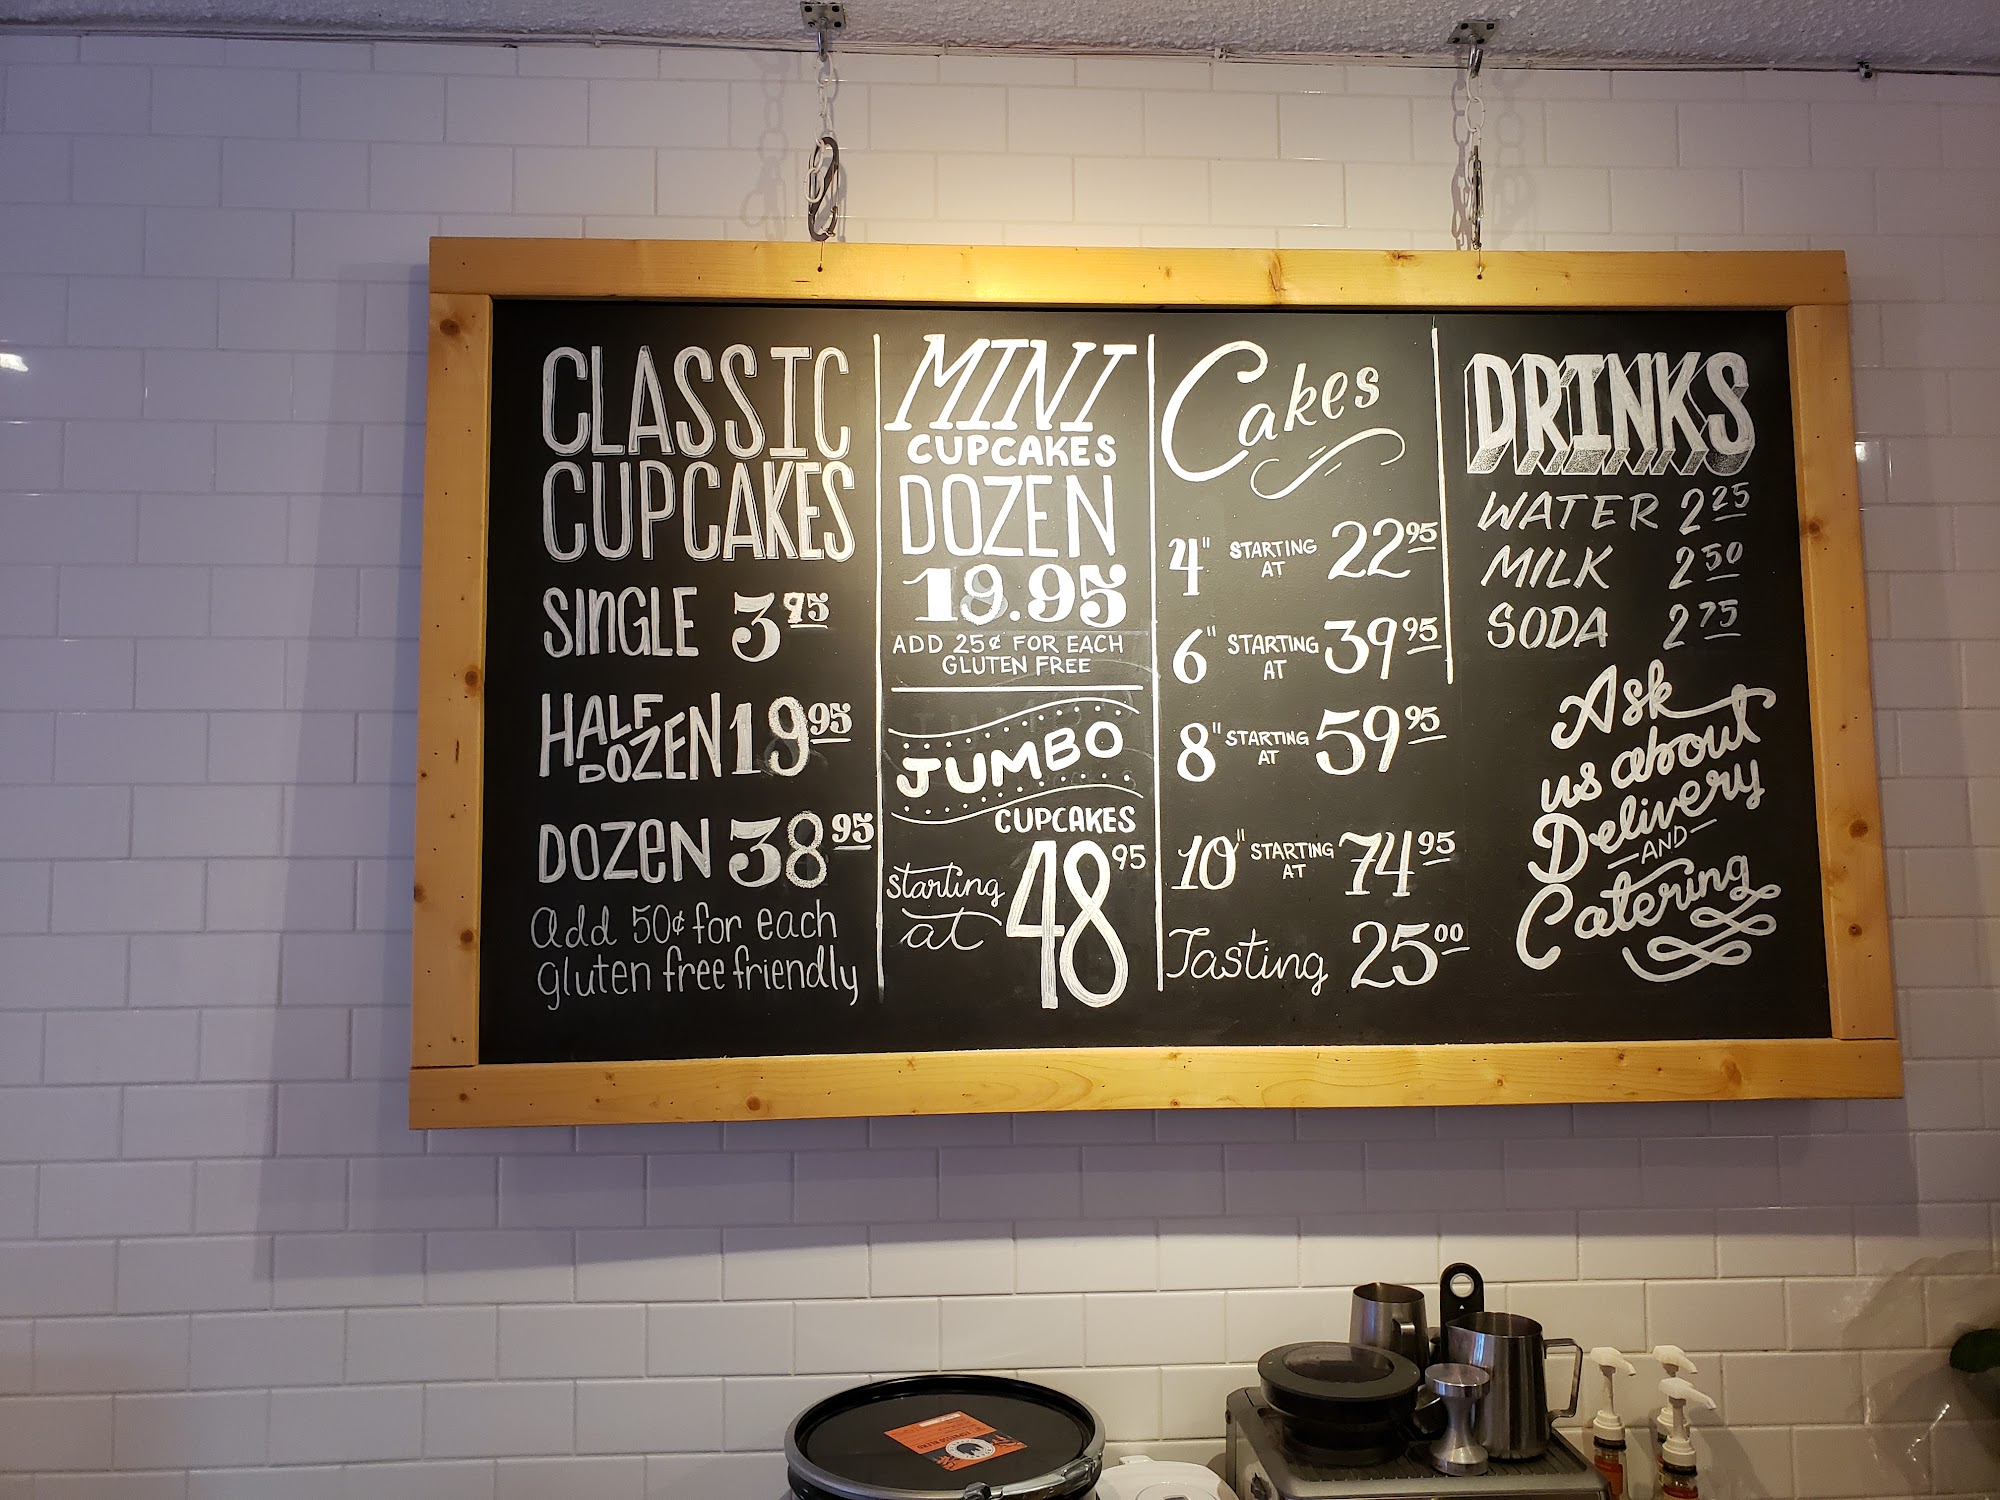 CLASSIC
CUPCAKES
SINGLE 3.75
HALF DOZEN 19.95
DOZEN 38.95
add 50¢ for each
gluten free friendly
MINI
CUPCAKES
DOZEN
19.95
ADD 25¢ FOR EACH
GLUTEN FREE
JUMBO
CUPCAKES
starting at 48 95
Cakes
4" STARTING AT 22 95
6" STARTING AT 39 95
8" STARTING AT 59 95
10" STARTING AT 74 95
Tasting 25 00
DRINKS
WATER 2 25
MILK 2 50
SODA 2 75
Ask
us about
Delivery
AND
Catering